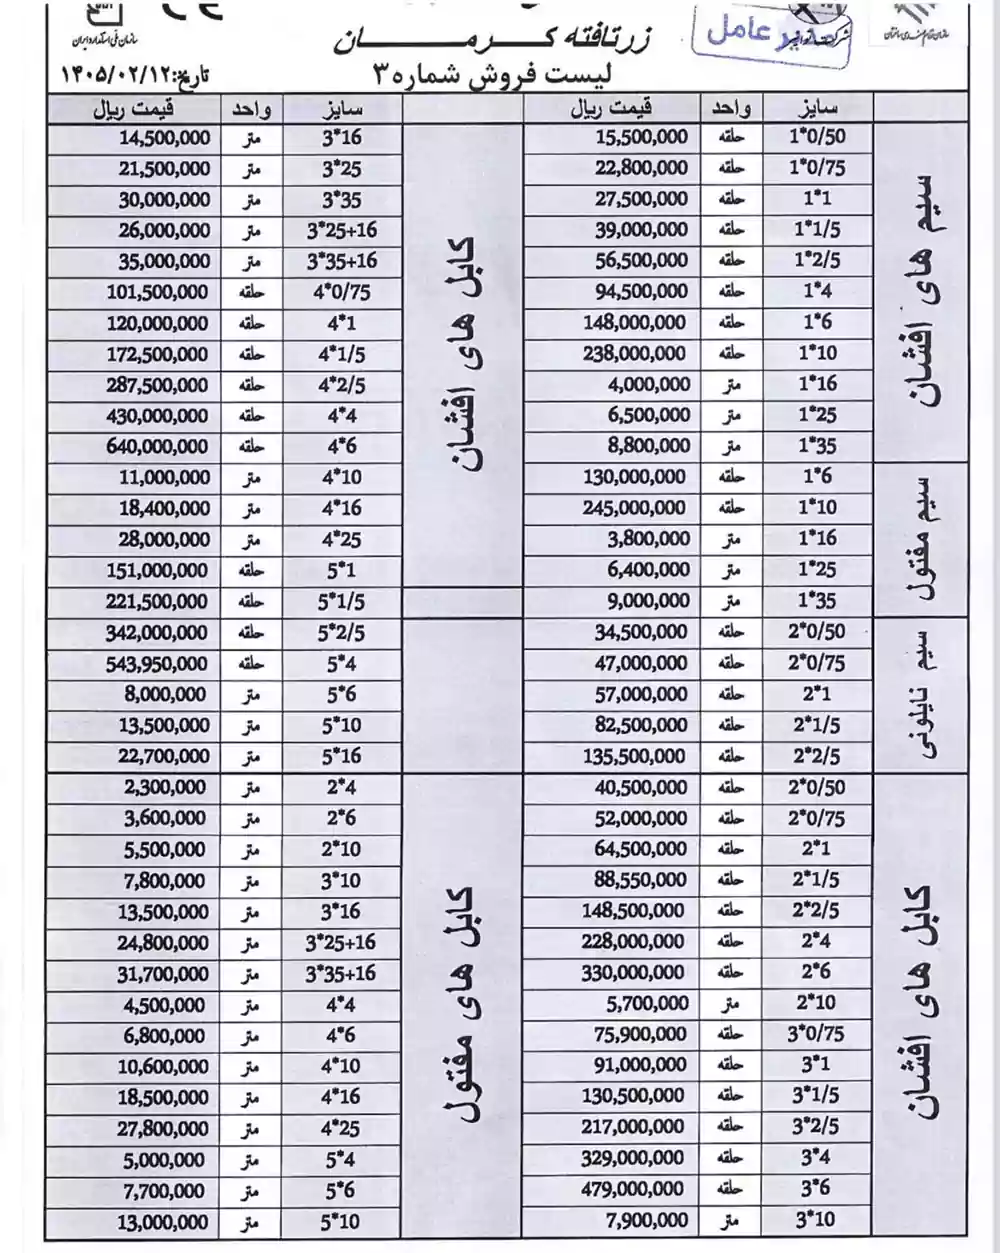 سازمان ملی استاندارد ایران
زرتافته کرمان
مدیر عامل
تاریخ: ۱۴۰۵/۰۲/۱۲
لیست فروش شماره ۳
سایز واحد قیمت ریال سایز واحد قیمت ریال
سیم های افشان
کابل های افشان
1*0/50 حلقه 15,500,000 3*16 متر 14,500,000
1*0/75 حلقه 22,800,000 3*25 متر 21,500,000
1*1 حلقه 27,500,000 3*35 متر 30,000,000
1*1/5 حلقه 39,000,000 3*25+16 متر 26,000,000
1*2/5 حلقه 56,500,000 3*35+16 متر 35,000,000
1*4 حلقه 94,500,000 4*0/75 حلقه 101,500,000
1*6 حلقه 148,000,000 4*1 حلقه 120,000,000
1*10 حلقه 238,000,000 4*1/5 حلقه 172,500,000
1*16 متر 4,000,000 4*2/5 حلقه 287,500,000
1*25 متر 6,500,000 4*4 حلقه 430,000,000
1*35 متر 8,800,000 4*6 حلقه 640,000,000
سیم مفتول
1*6 حلقه 130,000,000 4*10 متر 11,000,000
1*10 حلقه 245,000,000 4*16 متر 18,400,000
1*16 متر 3,800,000 4*25 متر 28,000,000
1*25 متر 6,400,000 5*1 حلقه 151,000,000
1*35 متر 9,000,000 5*1/5 حلقه 221,500,000
سیم نایلونی
2*0/50 حلقه 34,500,000 5*2/5 حلقه 342,000,000
2*0/75 حلقه 47,000,000 5*4 حلقه 543,950,000
2*1 حلقه 57,000,000 5*6 متر 8,000,000
2*1/5 حلقه 82,500,000 5*10 متر 13,500,000
2*2/5 حلقه 135,500,000 5*16 متر 22,700,000
کابل های افشان
کابل های مفتول
2*0/50 حلقه 40,500,000 2*4 متر 2,300,000
2*0/75 حلقه 52,000,000 2*6 متر 3,600,000
2*1 حلقه 64,500,000 2*10 متر 5,500,000
2*1/5 حلقه 88,550,000 3*10 متر 7,800,000
2*2/5 حلقه 148,500,000 3*16 متر 13,500,000
2*4 حلقه 228,000,000 3*25+16 متر 24,800,000
2*6 حلقه 330,000,000 3*35+16 متر 31,700,000
2*10 متر 5,700,000 4*4 متر 4,500,000
3*0/75 حلقه 75,900,000 4*6 متر 6,800,000
3*1 حلقه 91,000,000 4*10 متر 10,600,000
3*1/5 حلقه 130,500,000 4*16 متر 18,500,000
3*2/5 حلقه 217,000,000 4*25 متر 27,800,000
3*4 حلقه 329,000,000 5*4 متر 5,000,000
3*6 حلقه 479,000,000 5*6 متر 7,700,000
3*10 متر 7,900,000 5*10 متر 13,000,000